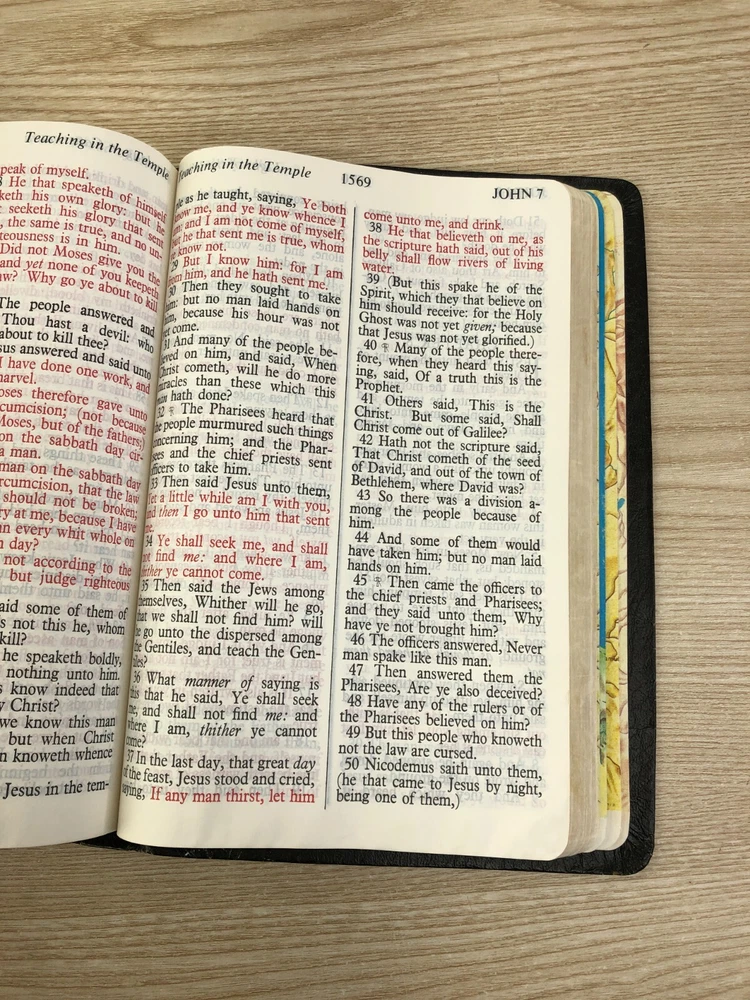 Teaching in the Temple
peak of myself.
He that speaketh of himself
keth his own glory: but he
seeketh his glory that sent
, the same is true, and no un-
teousness is in him.
Did not Moses give you the
and yet none of you keepeth
aw? Why go ye about to kill
The people answered and
Thou hast a devil: who
about to kill thee?
sus answered and said unto
I have done one work, and
marvel.
oses therefore gave unto
cumcision; (not because
Moses, but of the fathers;)
on the sabbath day cir-
a man.
man on the sabbath day
rcumcision, that the law
should not be broken;
ry at me, because I have
an every whit whole on
h day?
not according to the
but judge righteous
aid some of them of
s not this he, whom
kill?
he speaketh boldly,
nothing unto him.
s know indeed that
y Christ?
we know this man
but when Christ
n knoweth whence
Jesus in the tem-
eaching in the Temple
1569
JOHN 7
le as he taught, saying, Ye both
now me, and ye know whence I
and I am not come of myself,
ut he that sent me is true, whom
e know not.
29 But I know him: for I am
rom him, and he hath sent me.
30 Then they sought to take
im: but no man laid hands on
im, because his hour was not
et come.
31 And many of the people be-
ieved on him, and said, When
Christ cometh, will he do more
miracles than these which this
man hath done?
32 ¶ The Pharisees heard that
the people murmured such things
concerning him; and the Phar-
sees and the chief priests sent
officers to take him.
33 Then said Jesus unto them,
Yet a little while am I with you,
and then I go unto him that sent
me.
34 Ye shall seek me, and shall
not find me: and where I am,
thither ye cannot come.
35 Then said the Jews among
themselves, Whither will he go,
that we shall not find him? will
he go unto the dispersed among
the Gentiles, and teach the Gen-
tiles?
36 What manner of saying is
this that he said, Ye shall seek
me, and shall not find me: and
where I am, thither ye cannot
come?
37 In the last day, that great day
of the feast, Jesus stood and cried,
saying, If any man thirst, let him
come unto me, and drink.
38 He that believeth on me, as
the scripture hath said, out of his
belly shall flow rivers of living
water.
39 (But this spake he of the
Spirit, which they that believe on
him should receive: for the Holy
Ghost was not yet given; because
that Jesus was not yet glorified.)
40 ¶ Many of the people there-
fore, when they heard this say-
ing, said, Of a truth this is the
Prophet.
41 Others said, This is the
Christ. But some said, Shall
Christ come out of Galilee?
42 Hath not the scripture said,
That Christ cometh of the seed
of David, and out of the town of
Bethlehem, where David was?
43 So there was a division a-
mong the people because of
him.
44 And some of them would
have taken him; but no man laid
hands on him.
45 ¶ Then came the officers to
the chief priests and Pharisees;
and they said unto them, Why
have ye not brought him?
46 The officers answered, Never
man spake like this man.
47 Then answered them the
Pharisees, Are ye also deceived?
48 Have any of the rulers or of
the Pharisees believed on him?
49 But this people who knoweth
not the law are cursed.
50 Nicodemus saith unto them,
(he that came to Jesus by night,
being one of them,)